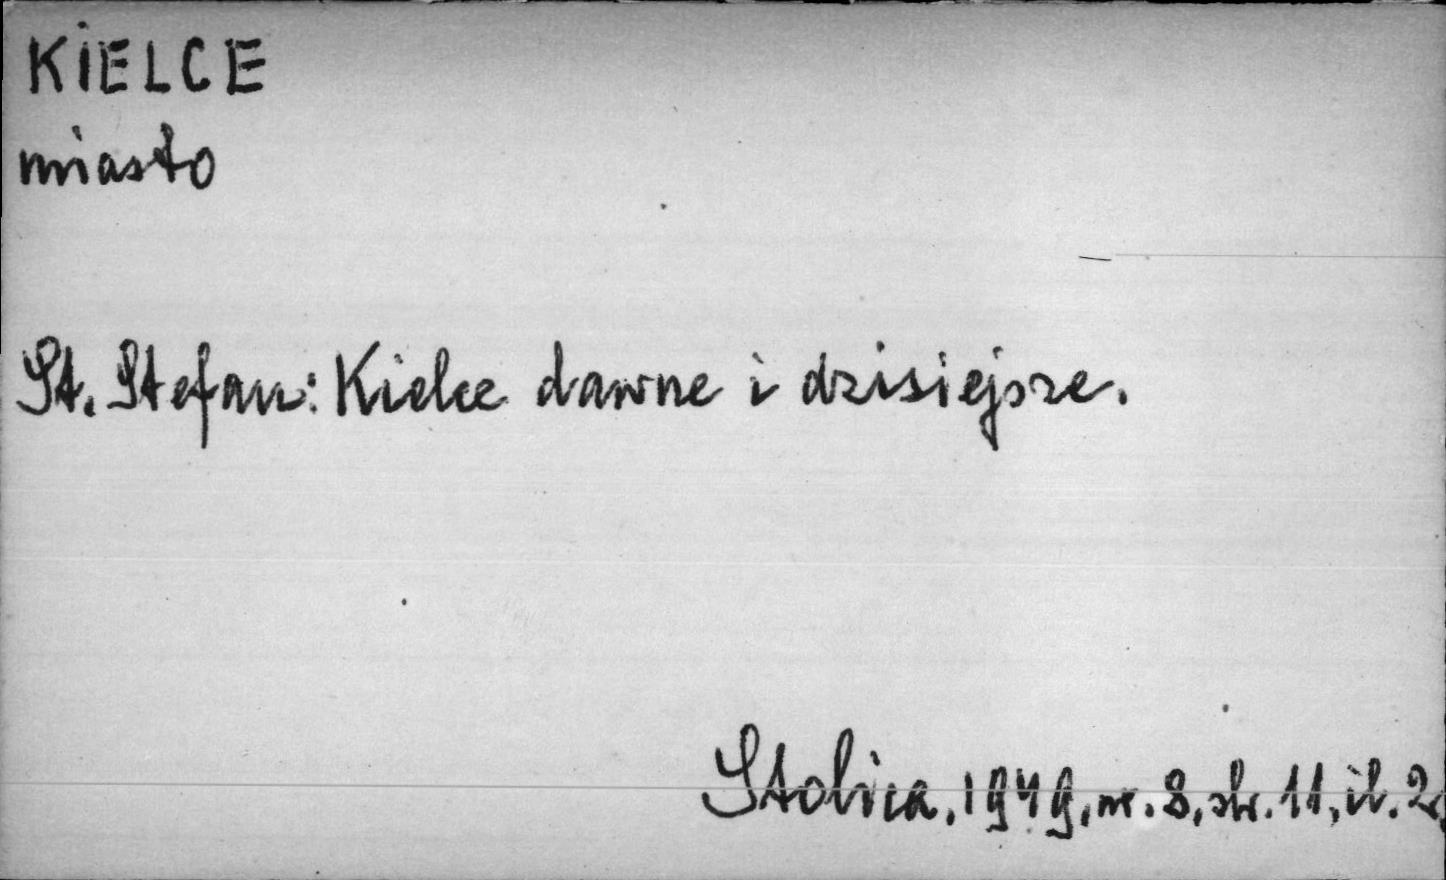 KIELCE
miasto
St. Stefan: Kielce dawne i dzisiejsze.
Stolica, 1949, nr. 8, str. 11, il. 2,